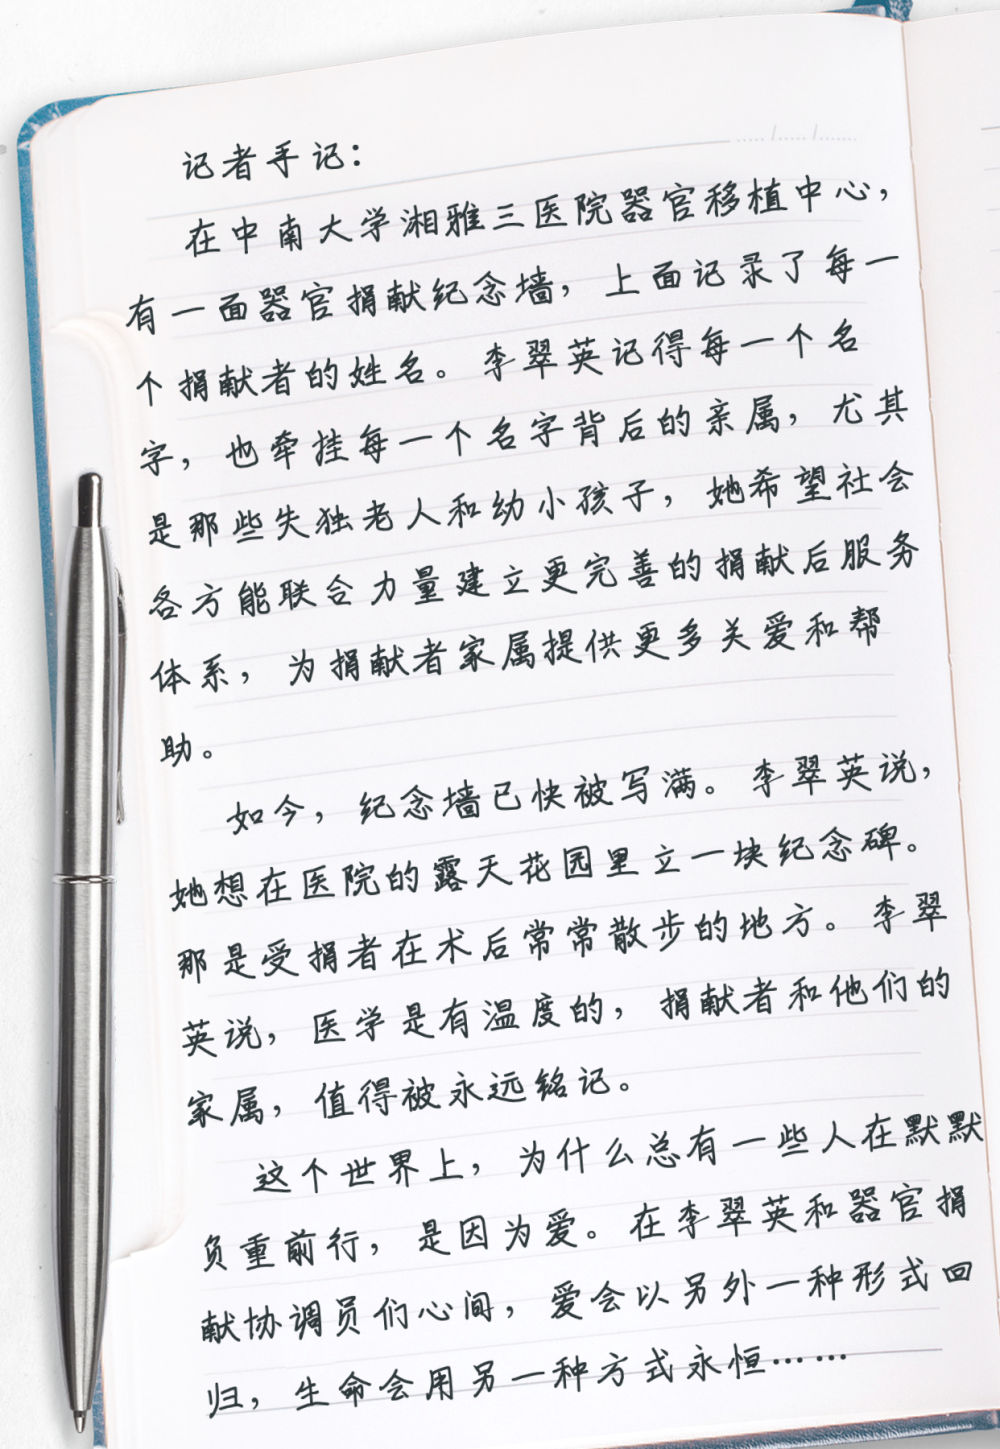 记者手记：
在中南大学湘雅三医院器官移植中心，
有一面器官捐献纪念墙，上面记录了每一
个捐献者的姓名。李翠英记得每一个名
字，也牵挂每一个名字背后的亲属，尤其
是那些失独老人和幼小孩子，她希望社会
各方能联合力量建立更完善的捐献后服务
体系，为捐献者家属提供更多关爱和帮
助。
如今，纪念墙已快被写满。李翠英说，
她想在医院的露天花园里立一块纪念碑。
那是受捐者在术后常常散步的地方。李翠
英说，医学是有温度的，捐献者和他们的
家属，值得被永远铭记。
这个世界上，为什么总有一些人在默默
负重前行，是因为爱。在李翠英和器官捐
献协调员们心间，爱会以另外一种形式回
归，生命会用另一种方式永恒……